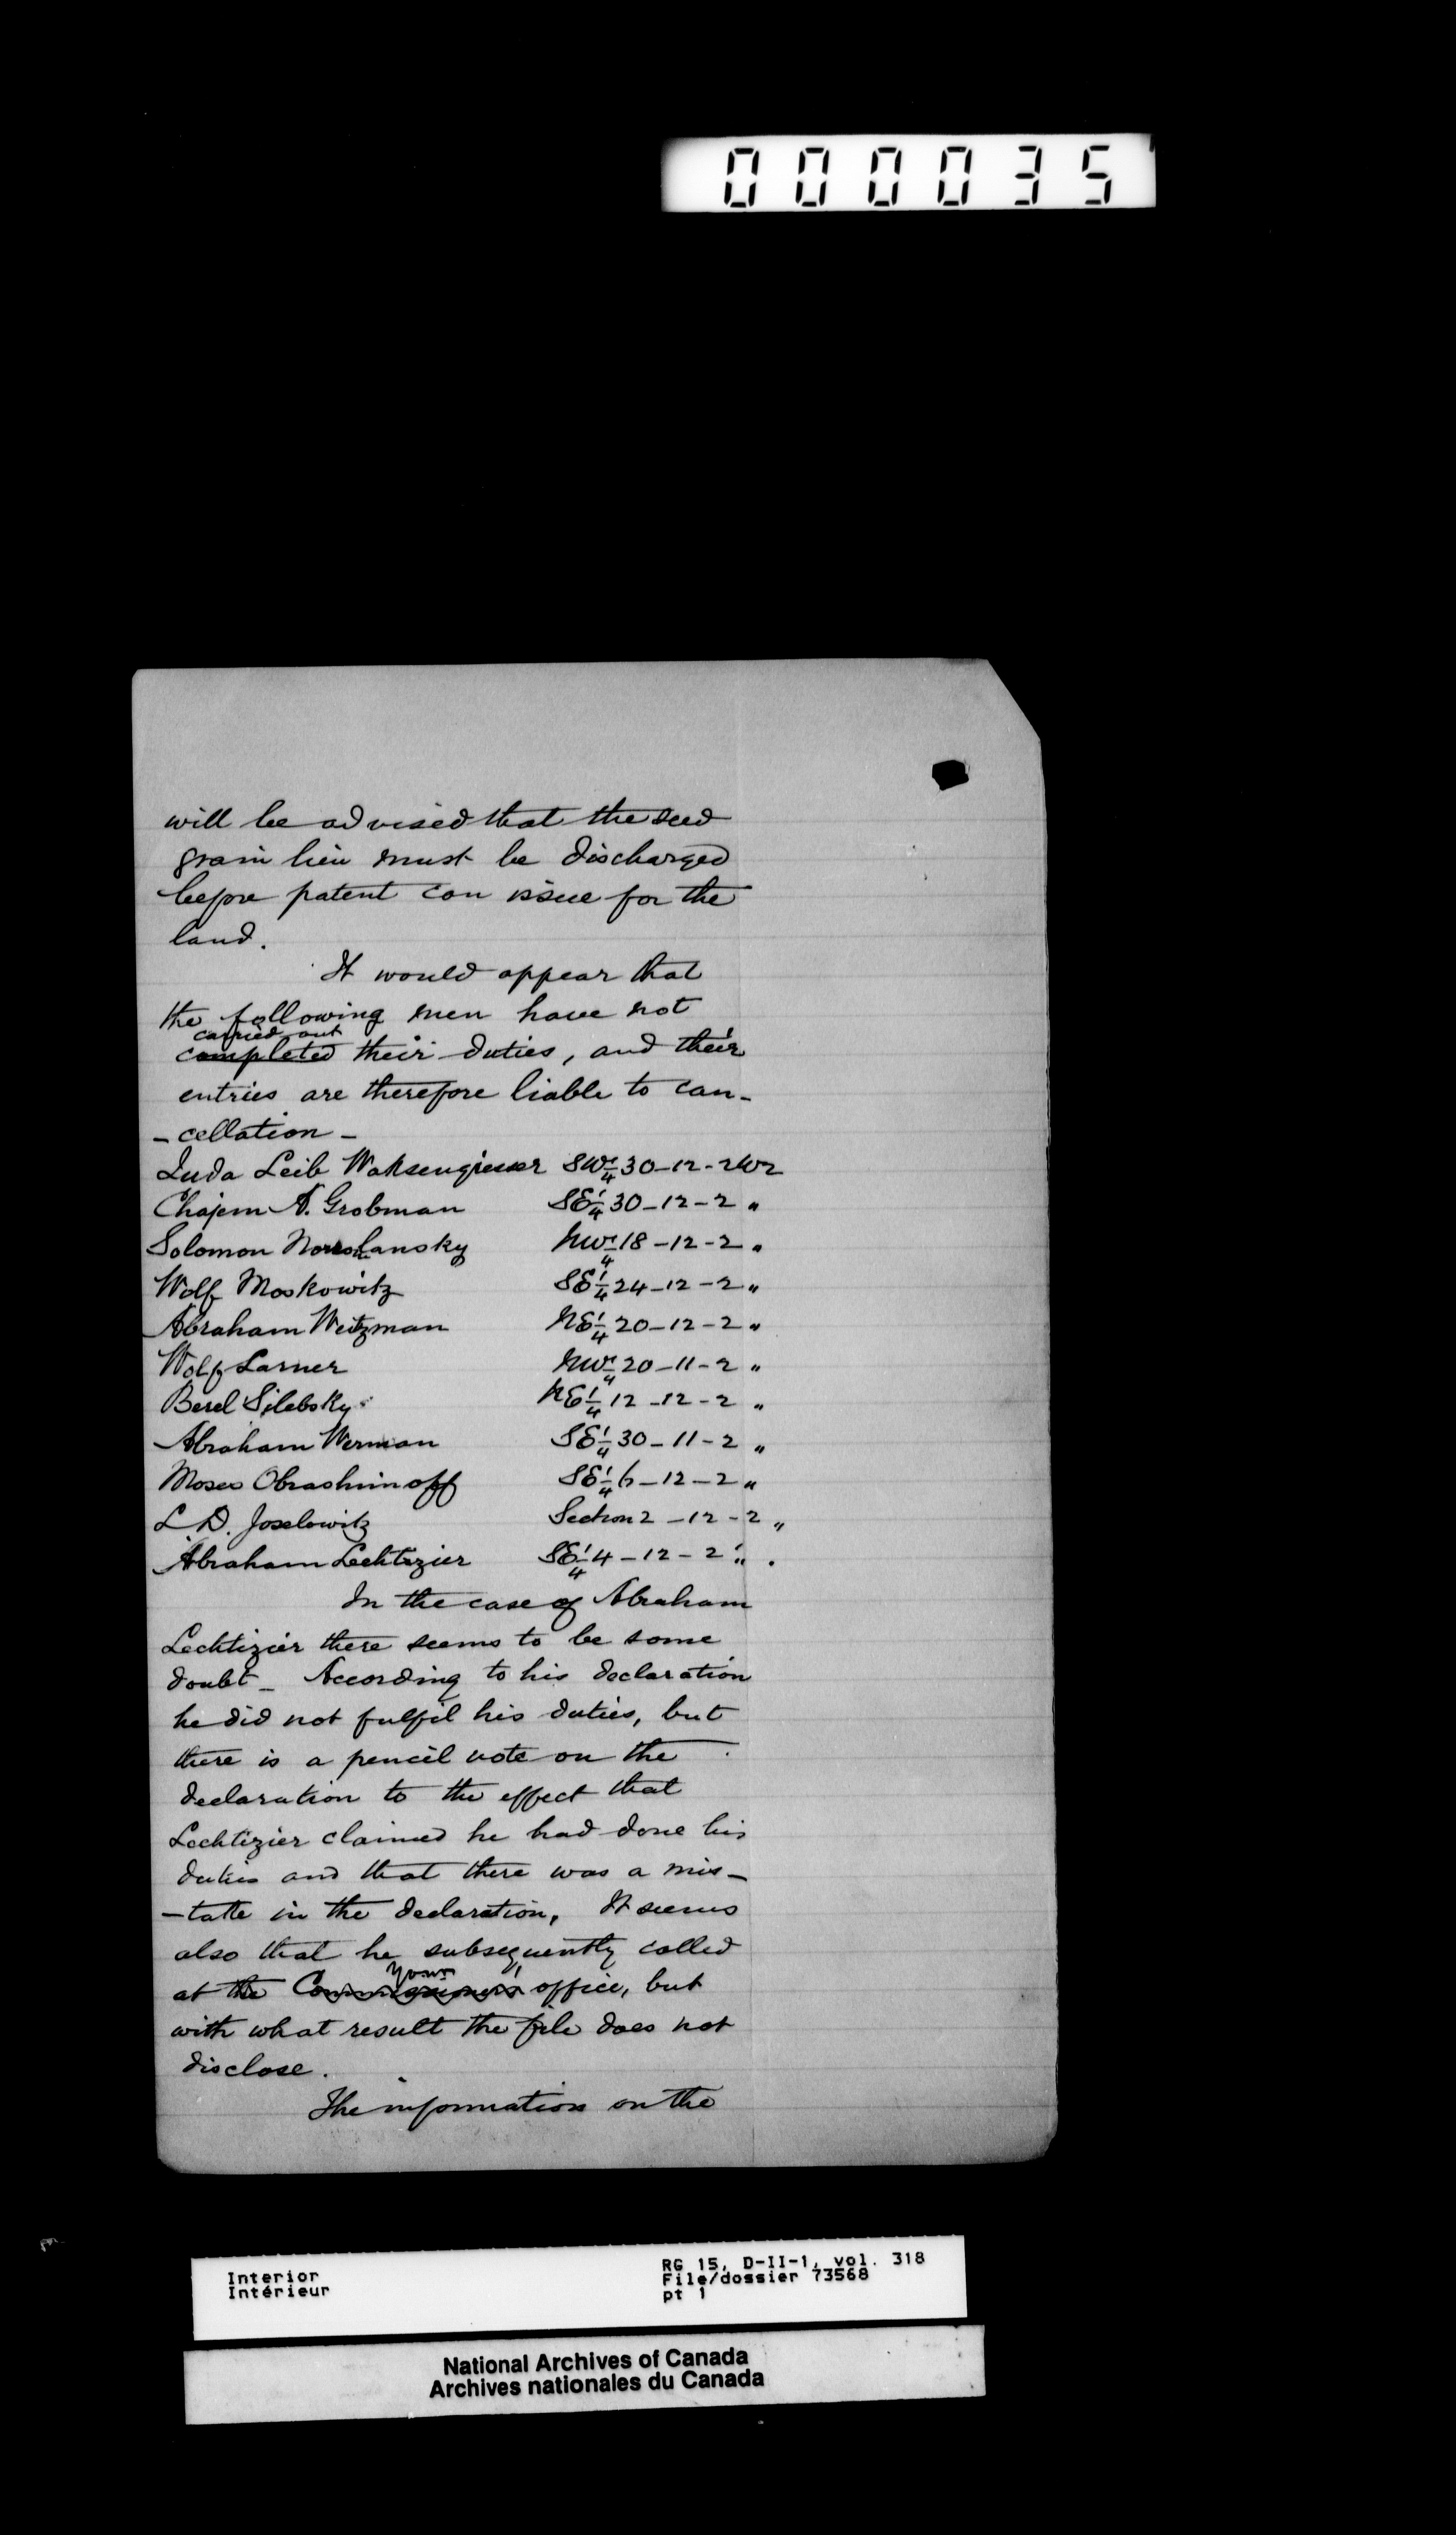 000035
will be advised that the seed
grain lien must be discharged
before patent can issue for the
land.
It would appear that
the following men have not
carried out
completed their duties, and their
entries are therefore liable to can-
-cellation -
Juda Leib Waksengiesser SW¼ 30-12-2W2
Chajem A. Grobman SE¼ 30-12-2 "
Solomon NW¼ 18-12-2 "
Wolf Moskowitz SE¼ 24-12-2 "
Abraham Weitzman NE¼ 20-12-2 "
Wolf Larner NW¼ 20-11-2 "
Berel Silebsky NE¼ 12-12-2 "
Abraham Werman SE¼ 30-11-2 "
Moses Obrashimoff SE¼ 6-12-2 "
L. D. Joselowitz Section 2-12-2 "
Abraham Lechtizier SE¼ 4-12-2 " .
In the case of Abraham
Lechtizier there seems to be some
doubt - According to his declaration
he did not fulfil his duties, but
there is a pencil note on the
declaration to the effect that
Lechtizier claimed he had done his
duties and that there was a mis-
-take in the declaration, It seems
also that he subsequently called
your
at the Commissioner's office, but
with what result the file does not
disclose.
The information on the
Interior
Intérieur
RG 15, D-II-1, vol. 318
File/dossier 73568
pt 1
National Archives of Canada
Archives nationales du Canada